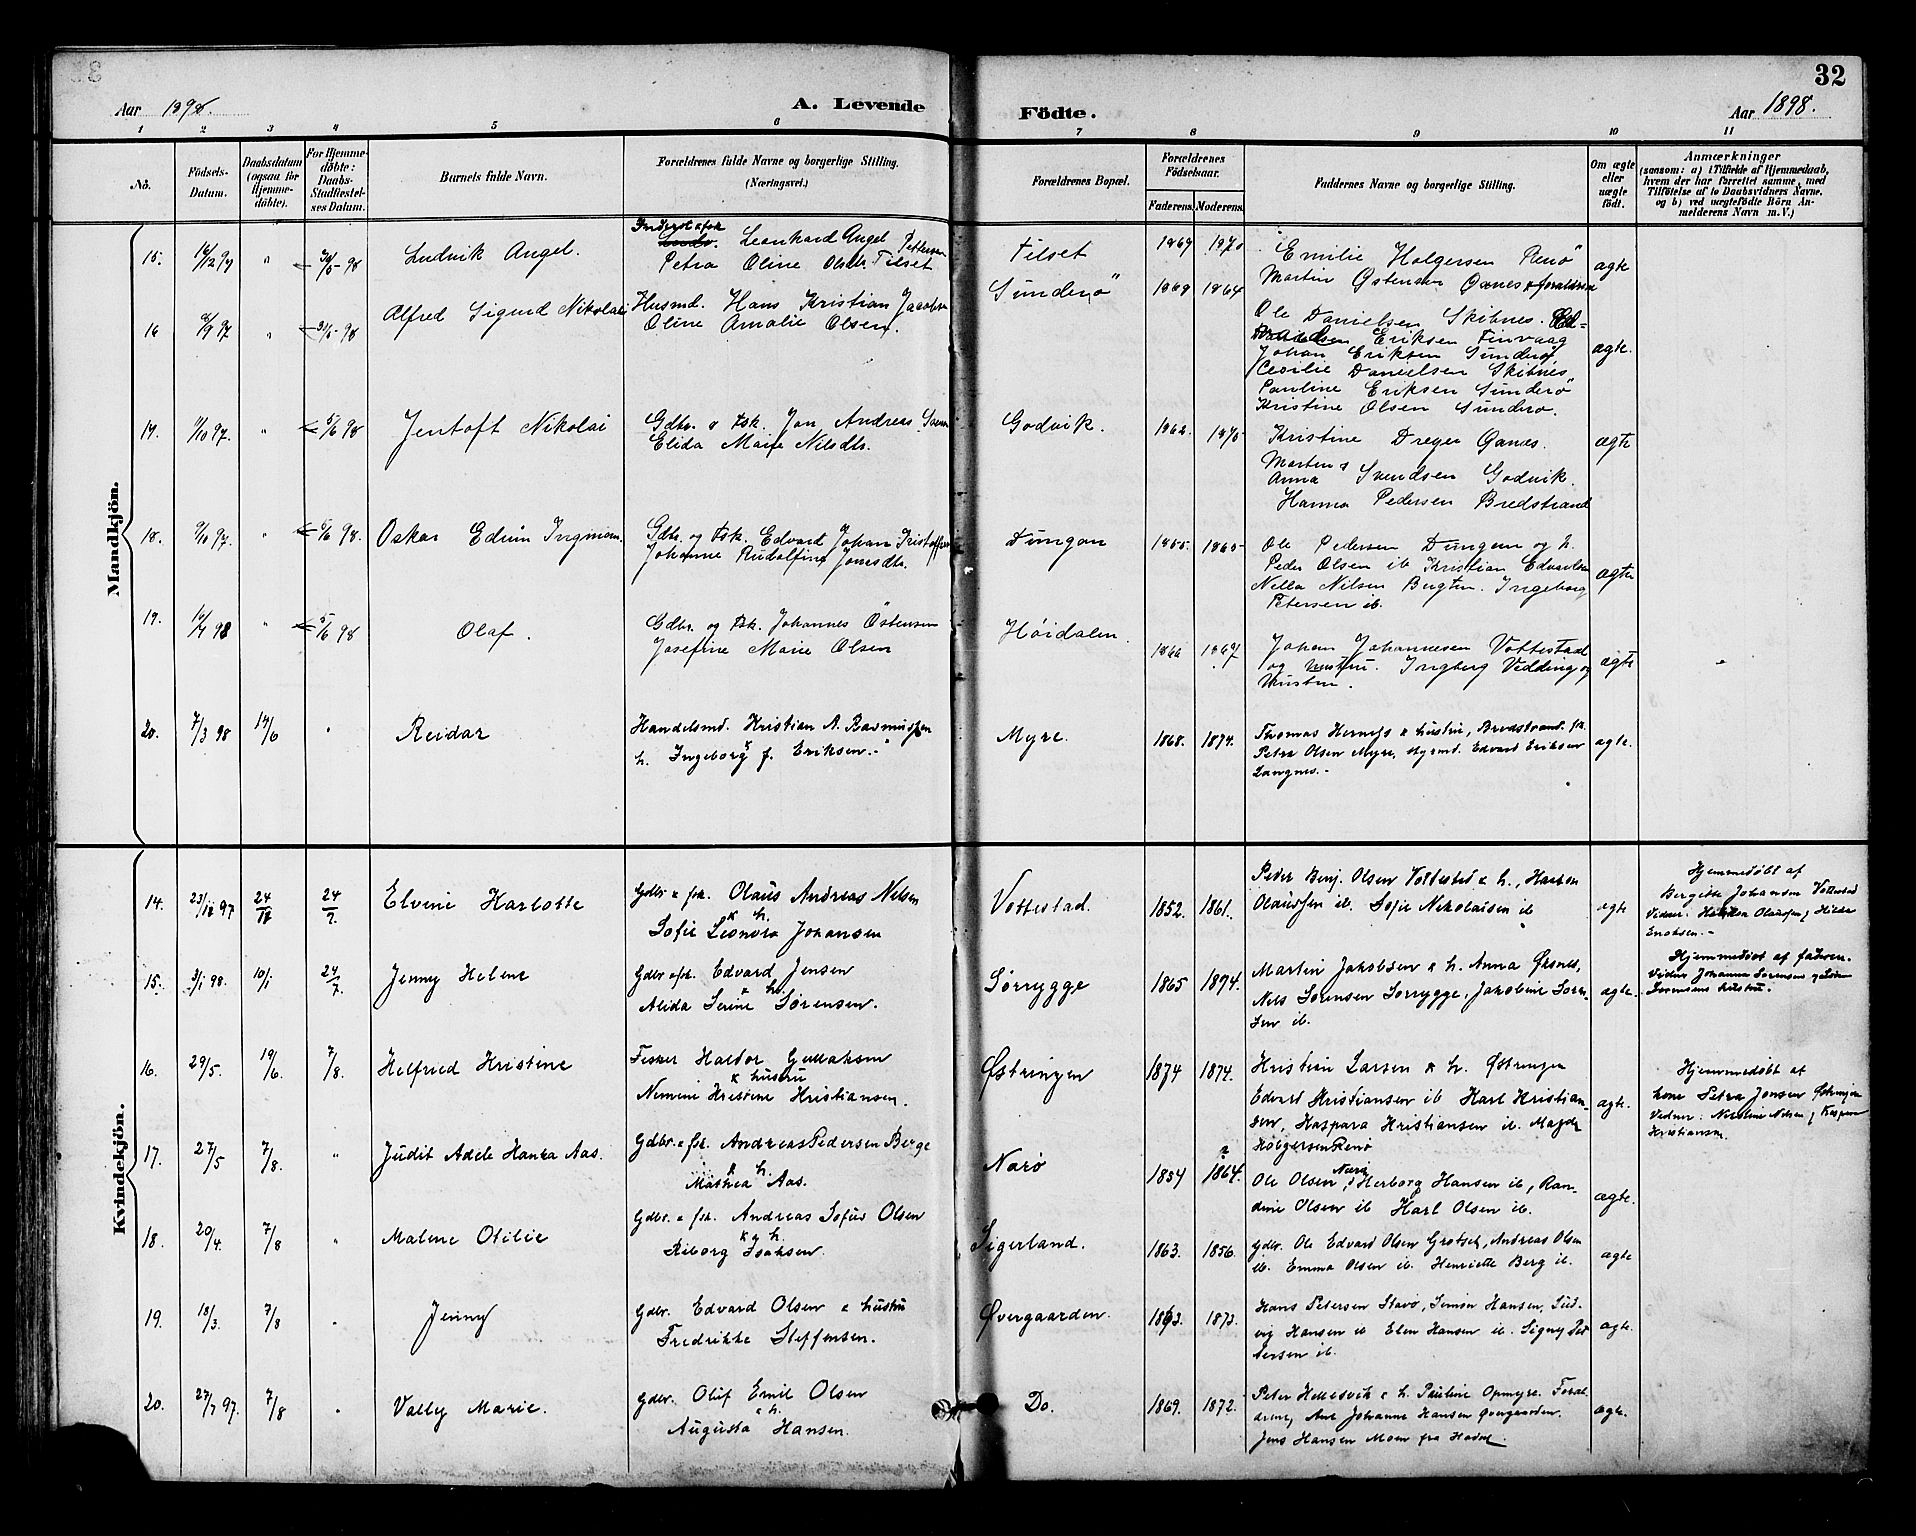 32
Aar 1898.
A. Levende
Födte.
Aar 1898.
1 2 3 4 5 6 7 8 9 10 11
No.
Födsels-
Datum.
Daabsdatum
(ogsaa for
Hjemme-
döbte).
For Hjemme-
döbte:
Daabs-
Stadfæstel-
ses Datum.
Barnets fulde Navn.
Forældrenes fulde Navne og borgerlige Stilling.
(Næringsvei.)
Forældrenes Bopæl.
Forældrenes
Födselsaar.
Faderens. Moderens.
Faddernes Navne og borgerlige Stilling.
Om ægte
eller
uægte
födt.
Anmærkninger
(saasom: a) i Tilfælde af Hjemmedaab,
hvem der har forrettet samme, med
Tilföielse af to Daabsvidners Navne,
og b) ved uægtefödte Börn An-
melderens Navn m. V.)
Mandkjön.
15. " Ludvik Angel.
Leonhard Angel Pettersen
Petra Oline Olsdtr Tilset
Tilset 1869 1870
Emilie Holgersen Renö
Martin Østensen Øxnes & forældrene
ægte
16 " Alfred Sigurd Nikolai
Husmd. Hans Kristian Jacobsen
Oline Amalie Olsen.
Sunderö 1869 1864
Ole Danielsen Skibnes.
Eriksen Finvaag
Johan Eriksen Sunderö,
Cecilie Danielsen Skibnes
Pauline Eriksen Sunderö
Kristine Olsen Sunderö.
ægte.
17. 11/10 97. " 5/6 98 Jentoft Nikolai
Gdbr. & Fsk. Jon Andreas
Elida Marie Nilsdtr.
Godvik. 1862. 1875
Kristine Dreyer Øxnes.
Martin &
Anna Svendsen Godvik.
Hanna Pedersen Bredstrand
ægte
18. " 5/6 98. Oskar Edvin Ingmann.
Gdbr. og Fsk. Edvard Johan Kristoffersen
Johanne Rudolfine Jonsdtr.
Tungen 1865
Ole Pedersen Dungen og h.
Peder Olsen ib Kristian Edvardsen
Nella Nilsen Bugten. Ingeborg
Petersen ib.
ægte
19. " 5/6 98 Olaf.
Gdbr. og Fsk. Johannes Östensen
Josefine Marie Olsen
Höidalen. 1866 1867
Johan Johannesen Vottestad
og hustru. Ingberg Vedding og
hustru.
ægte "
20. 7/3 98 19/6 " Reidar
Handelsmd. Kristian A. Rasmussen
h. Ingeborg f. Eriksen.
Myre. 1868. 1874.
Thomas Hernes & hustru, Bredstrand. fk.
Petra Olsen Myre, styrmd. Edvard Eriksen
Langnes.
ægte.
Kvindekjön.
14. 23/12 97 24/12 24/7. Elvine Karlotte
Gdbr & fsk. Olaus Andreas Nilsen
& h.
Sofie Leonora Johansen
Vottestad. 1852. 1861.
Peder Benj. Olsen Vottestad & h., Hartvi
Olaussen ib. Sofie Nikolaisen ib
egte
Hjemmedøbt af
Bergitte Johansen Vottestad
Vidner: Olaussen, Hilda
Enoksen.
15. 3/1 98. 10/1 24/7 Jenny Helene
Gdbr & fsk. Edvard Jensen
& h.
Alida Serine Sørensen.
Sørrygge 1865 1874.
Martin Jakobsen & h. Anna Øksnes,
Nels Sørensen Sørrygge, Jakobine Søren-
sen ib.
ægte.
Hjemmedøbt af faderen.
Vidner Johanna Sørensen
Sørensens hustru.
16. 29/5. 19/6 7/8. Helfried Kristine
Fisker Haldor Gulliksen
& hustru
Nemine Kristine Kristiansen.
Østringen 1874 1874.
Kristian Larsen & h. Østringen
Edvard Kristiansen ib Karl Kristian-
sen, Kaspara Kristiansen ib. Magda
Holgersen Renø
ægte.
Hjemmedøbt af
kone Petra Jonsen Østringen
Vidner: Nikoline Nilsen, Kaspara
Kristiansen
17. 27/5 7/8. " Judit Adele Hanna Aas.
Gdbr. & fsk. Andreas Pedersen Berge
& h.
Mathea Aas.
Narø 1854 1864.
Ole Olsen Narø, Herborg Hansen ib, Ran-
dine Olsen ib Karl Olsen ib.
ægte.
18. 20/4. 7/8 " Malene Otilie
Gdbr. & fsk. Andreas Sofus Olsen
& h.
Riborg Isaksen.
Sigerland. 1863. 1856.
Gdbr. Ole Edvard Olsen Grotset, Andreas Olsen
ib. Emma Olsen ib. Henriette Berg ib.
ægte
19. 18/3. 7/8 " Jenny
Gdbr. Edvard Olsen & hustru
Fredrikke Steffensen.
Øvergaarden. 1863. 1873.
Hans Petersen Stavø, Simon Hansen, Lud-
vig Hansen ib Elen Hansen ib. Signy Pet
tersen ib.
ægte.
20. 27/7 97. 7/8 " Valby Marie.
Gdbr. Oluf Emil Olsen
& h.
Augusta Hansen.
Do. 1869. 1872.
Peter Hellesvik & h. Pauline Opmyre. Foræl-
drene, Ane Johanne Hansen Øvergaarden.
Jens Hansen Moen fra Hadsel
ægte.